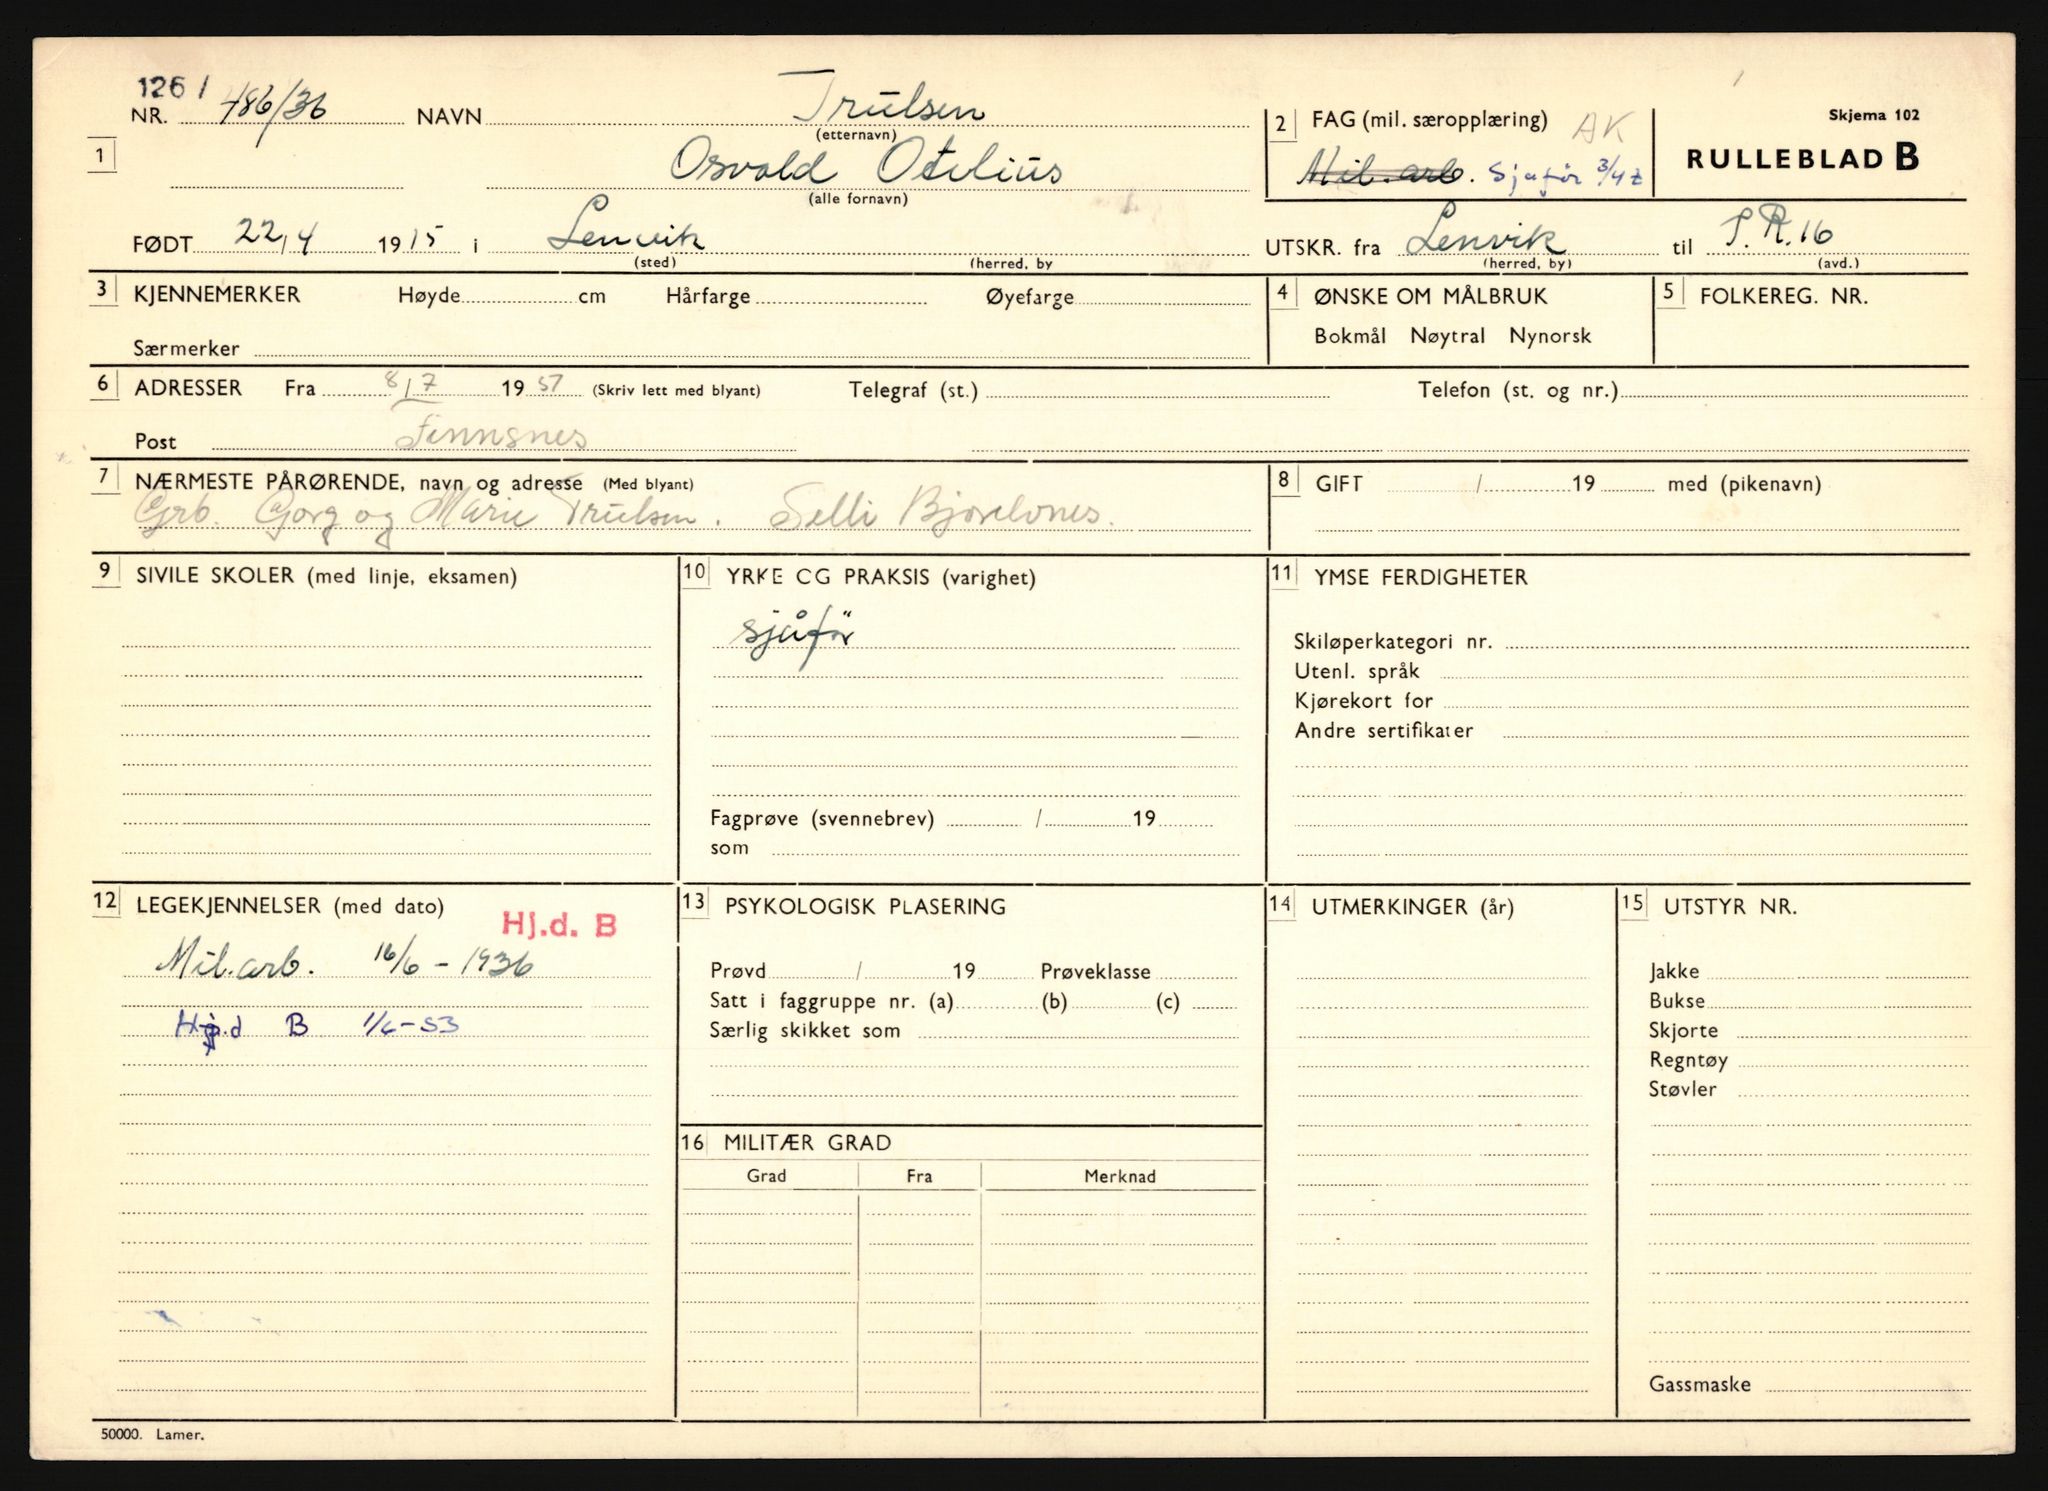 126 /
NR. 486/36 NAVN Trulsen
(etternavn)
2 FAG (mil. særopplæring) AK
Skjema 102
RULLEBLAD B
1
Osvald Otelius
(alle fornavn)
Mil. arb. Sjafør 3/42
FØDT 22/4 1915 i Lenvik
(sted) (herred, by
UTSKR. fra Lenvik til I.R.16
(herred, by) (avd.)
3 KJENNEMERKER Høyde cm Hårfarge Øyefarge
Særmerker
4 ØNSKE OM MÅLBRUK
Bokmål Nøytral Nynorsk
5 FOLKEREG. NR.
6 ADRESSER Fra 8/7 1957 (Skriv lett med blyant) Telegraf (st.) Telefon (st. og nr.)
Post Finnsnes
7 NÆRMESTE PÅRØRENDE, navn og adresse (Med blyant)
Grb. Gorg og Marie Trulsen. Selli Bjorelvnes.
8 GIFT / 19 med (pikenavn)
9 SIVILE SKOLER (med linje, eksamen)
10 YRKE CG PRAKSIS (varighet)
sjåför
Fagprøve (svennebrev) / 19
som
11 YMSE FERDIGHETER
Skiløperkategori nr.
Utenl. språk
Kjørekort for
Andre sertifikater
12 LEGEKJENNELSER (med dato)
Hj.d. B
Mil.arb. 16/6 - 1936
Hj.d B 1/6-53
13 PSYKOLOGISK PLASERING
Prøvd / 19 Prøveklasse
Satt i faggruppe nr. (a) (b) (c)
Særlig skikket som
14 UTMERKINGER (år)
15 UTSTYR NR.
Jakke
Bukse
Skjorte
Regntøy
Støvler
Gassmaske
16 MILITÆR GRAD
Grad Fra Merknad
50000. Lamer.